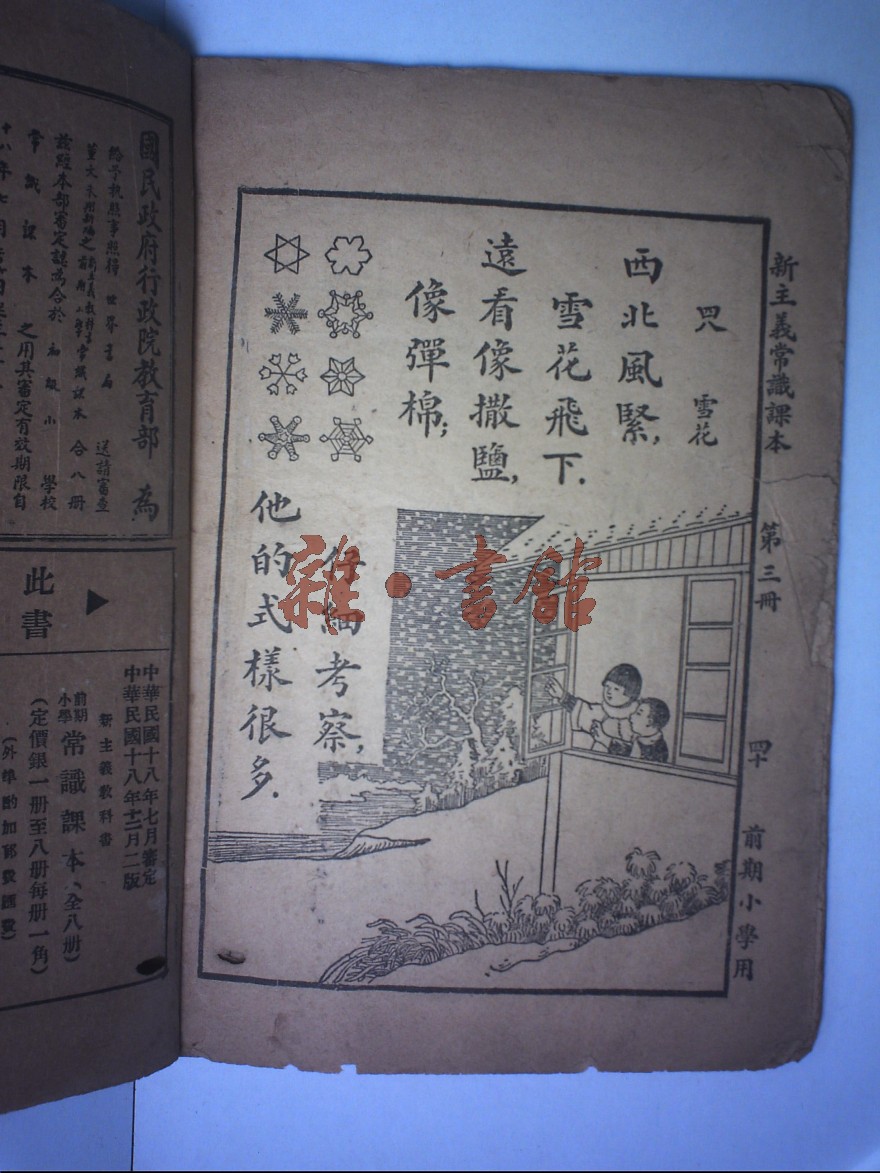 新主義常識課本
第三冊
四十
前期小學用
四八 雪花
西北風緊,
雪花飛下.
遠看像撒鹽,
像彈棉;
仔細考察,
他的式樣很多.
雜·書館
國民政府行政院教育部 為
送請審查
常識課本 合八冊
茲經本部審定認為合於 初級小學校
常識課本 之用其審定有效期限自
此書
中華民國十八年七月審定
中華民國十八年十二月二版
新主義教科書
前期小學 常識課本(全八冊)
(定價銀一冊至八冊每冊一角)
(外埠酌加郵費匯費)